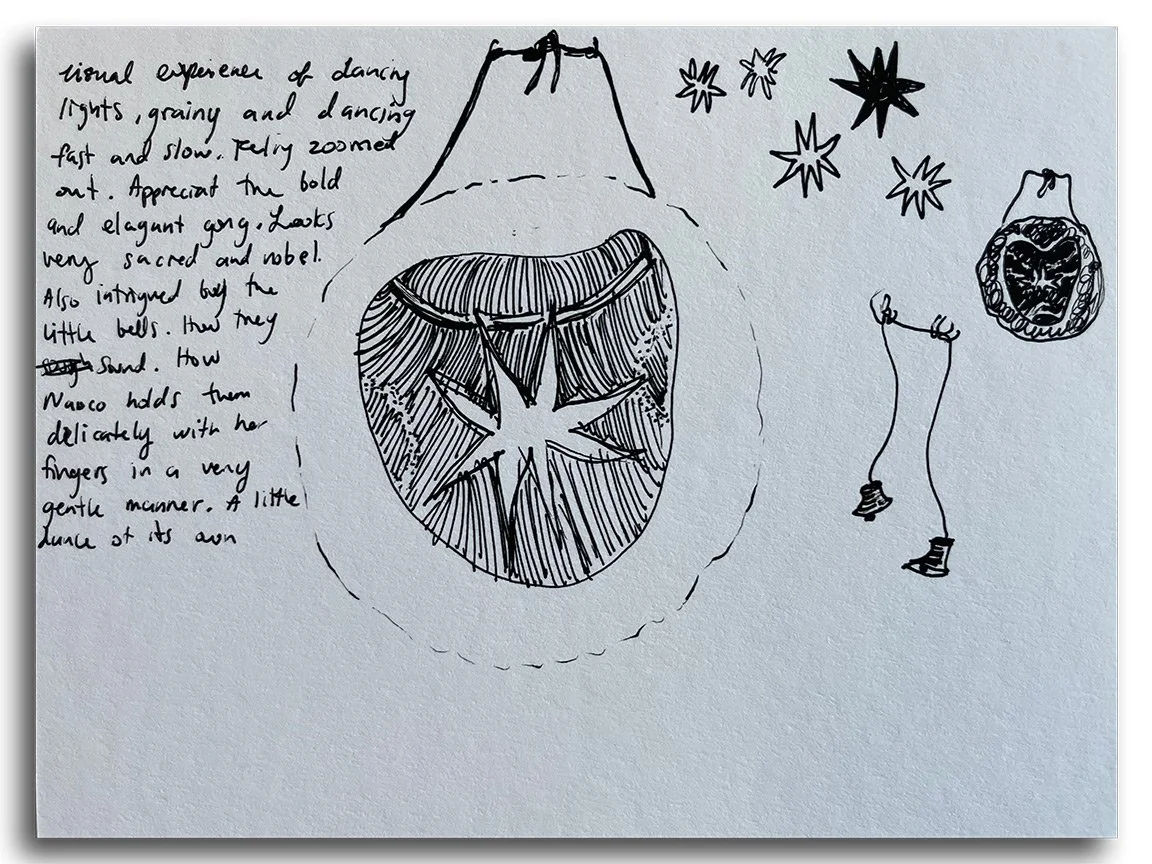 visual experience of dancing
lights, grainy and dancing
fast and slow. Feeling zoomed
out. Appreciat the bold
and elagant gong. Looks
very sacred and nobel.
Also intrigued buy the
little bells. How they
sound. How
Naoco holds them
delicately with her
fingers in a very
gentle manner. A little
dance of its own